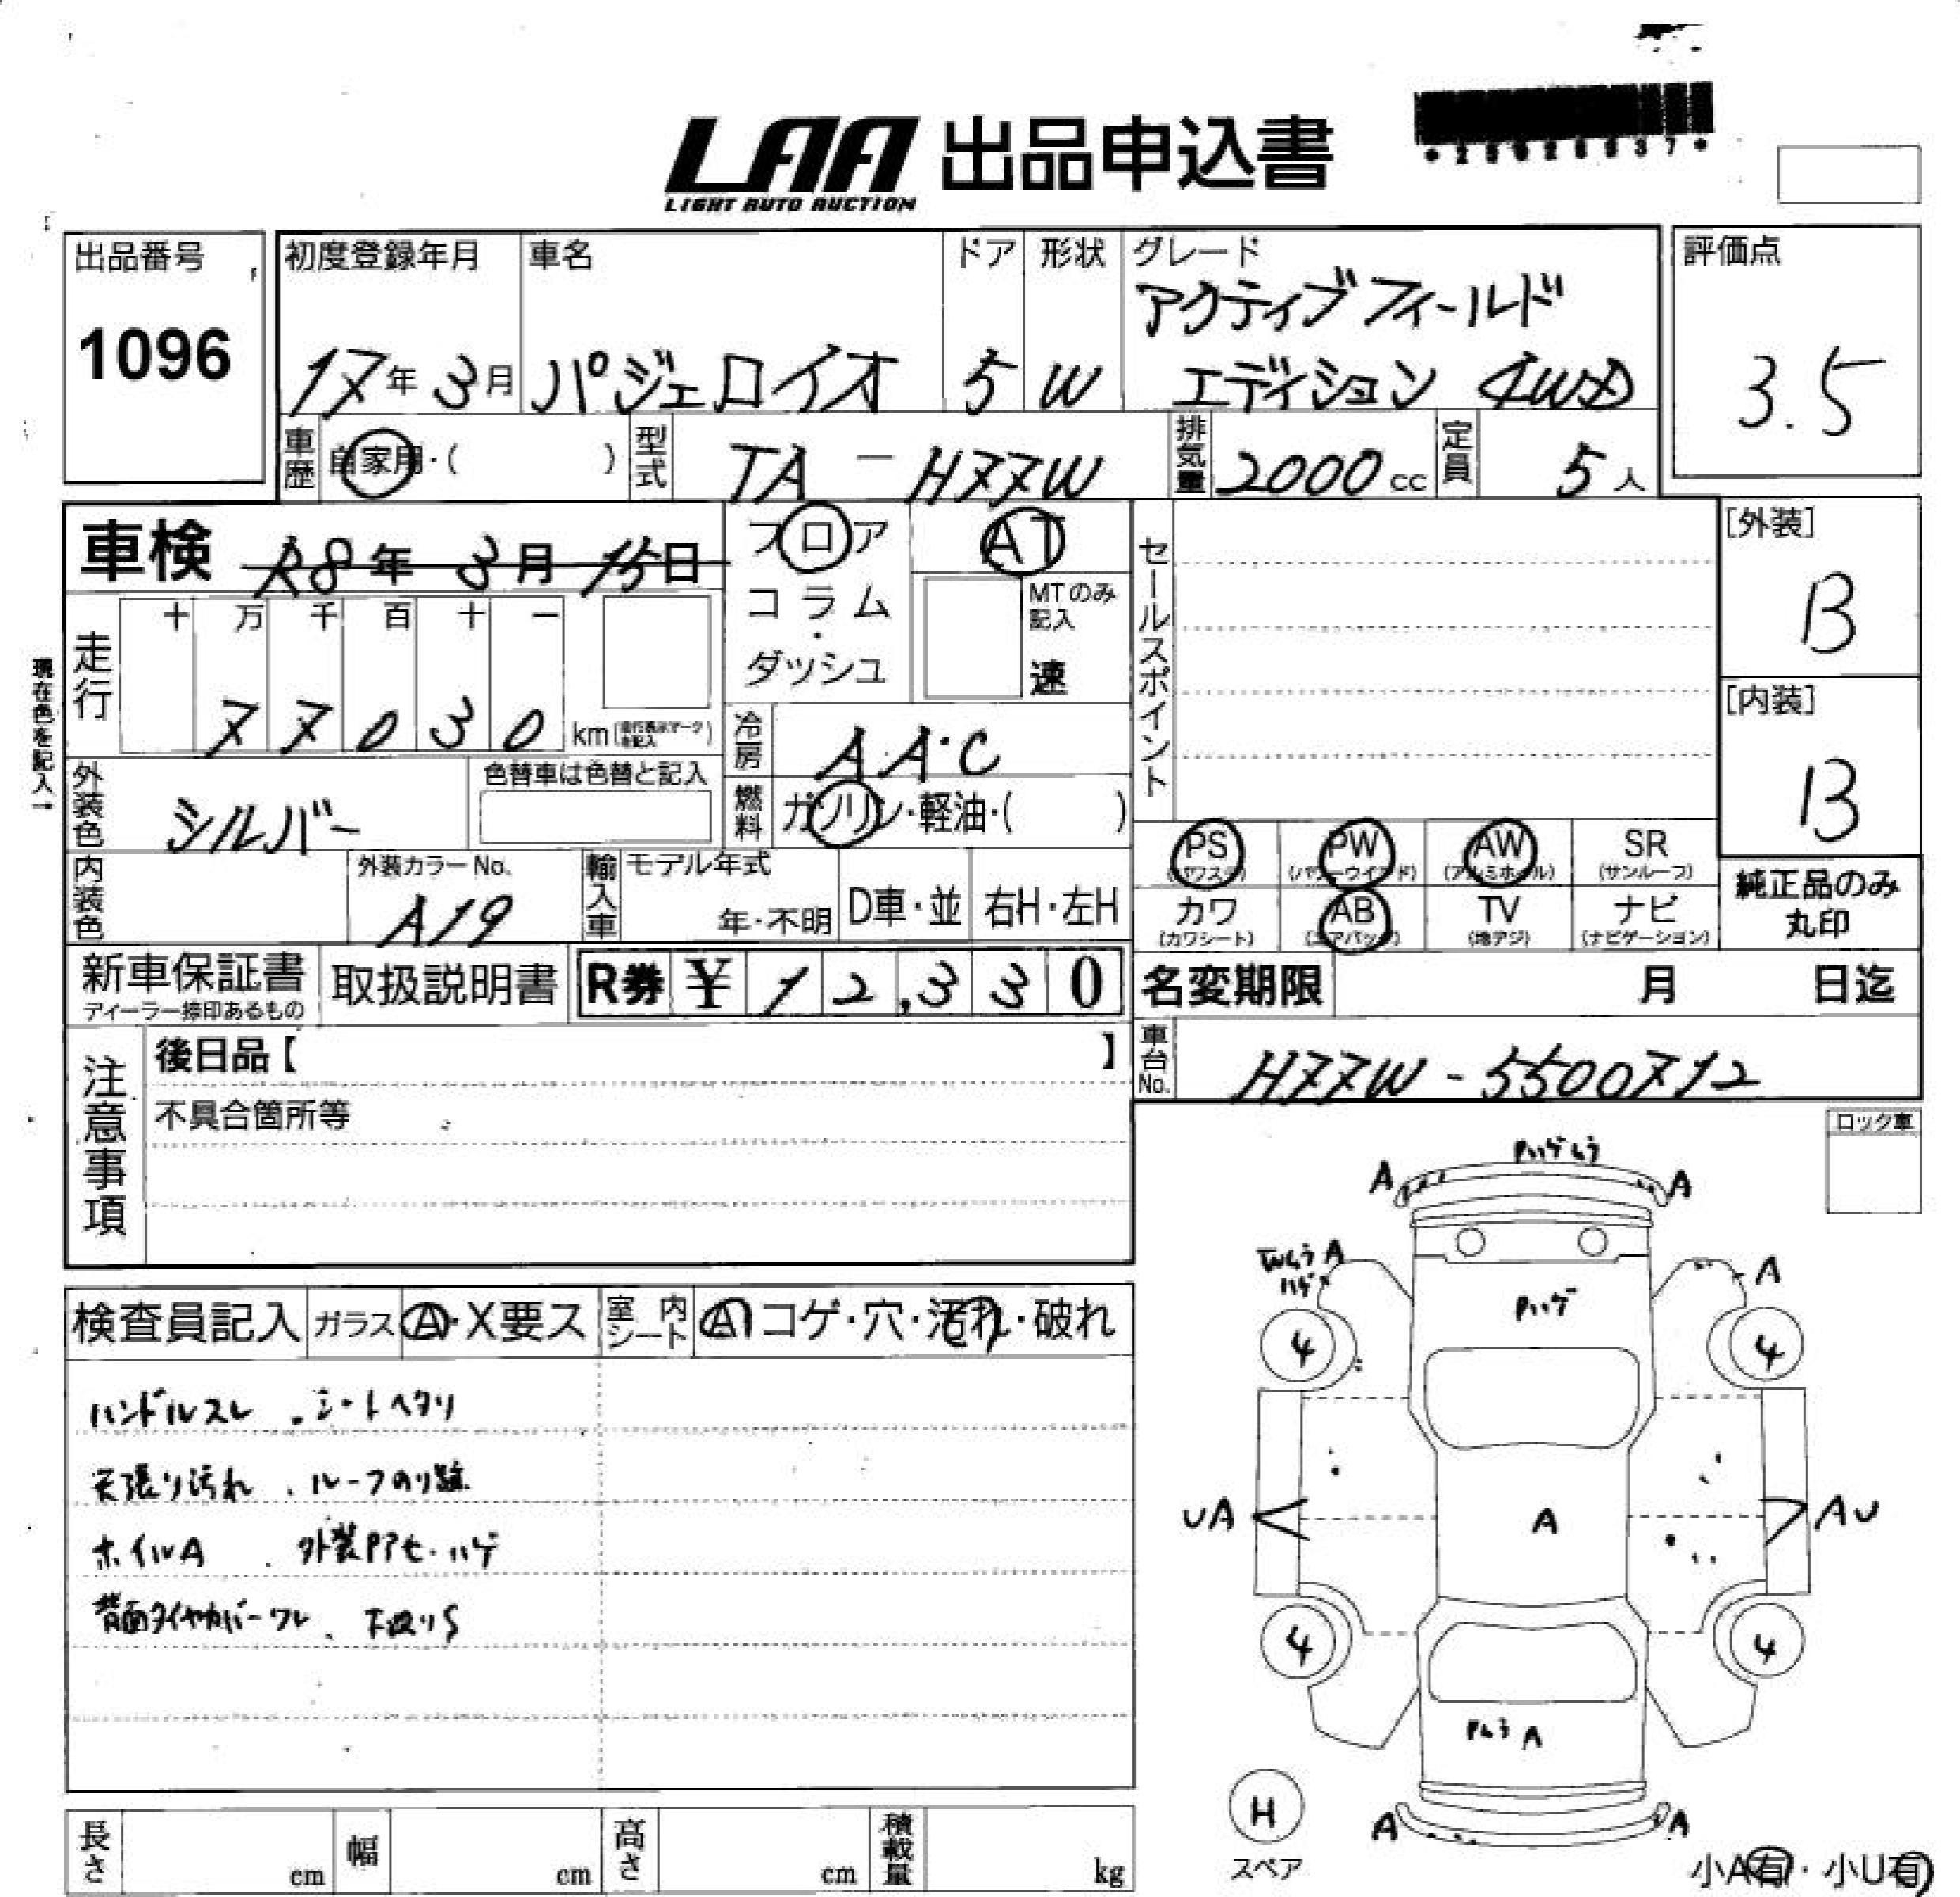 LAA 出品申込書
LIGHT AUTO AUCTION
出品番号
1096
初度登録年月
17年 3月
車名
パジェロイオ
ドア
5
形状
W
グレード
アクティブフィールド
エディション 4WD
評価点
3.5
車歴
自家用・( )
型式
TA - H77W
排気量
2000cc
定員
5人
車検 R8年 3月 15日
フロア
コラム
・
ダッシュ
AT
MTのみ
記入
速
セールスポイント
[外装]
B
[内装]
B
現在色を記入→
走行
十 万 千 百 十 一
77030 km
冷房
AAC
外装色
シルバー
色替車は色替と記入
燃料
ガソリン・軽油・( )
内装色
外装カラーNo.
A19
輸入車
モデル年式
年・不明
D車・並
右H・左H
PS
(パワステ)
PW
(パワーウインド)
AW
(アルミホイル)
SR
(サンルーフ)
カワ
(カワシート)
AB
(エアバッグ)
TV
(地デジ)
ナビ
(ナビゲーション)
純正品のみ
丸印
新車保証書
ディーラー捺印あるもの
取扱説明書
R券 ¥ 12,330
名変期限 月 日迄
注意事項
後日品【 】
不具合箇所等
車台No.
H77W - 5500712
ロック車
検査員記入
ガラス
A・X要ス
室内シート
A コゲ・穴・汚れ・破れ
ハンドルスレ 、シートヘタリ
天張り汚れ 、ルーフのり跡
ホイルA 、外装Pアセ・ハゲ
背面タイヤカバーワレ 、下廻りS
Pハゲムラ
A A
A
ハゲ
A
Pハゲ
4 4
UA A AU
4 4
Pムラ A
H
スペア
A A
小A有・小U有
長さ cm
幅 cm
高さ cm
積載量 kg